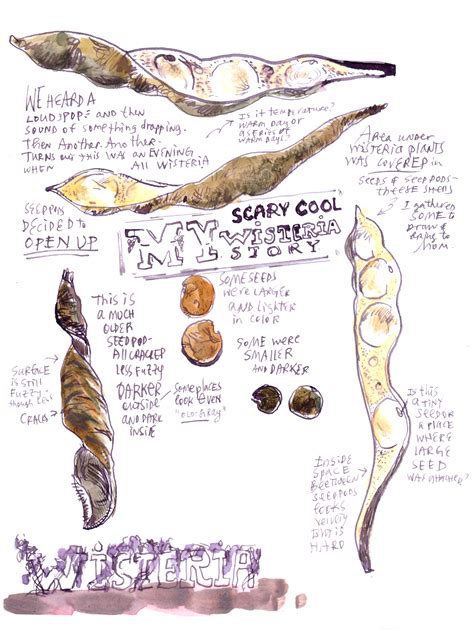 WE HEARD A
LOUD POP AND then
SOUND of something dropping.
Then Another. Another.
TURNS out this WAS AN EVENING
WHEN ALL WISTERIA
SEEDPODS
DECIDED to
OPEN UP
Is it temperature?
WARM DAY or
A SERIES of
WARM DAYS?
AREA UNDER
WISTERIA PLANTS
WAS COVERED in
SEEDS & SEEDPODS
I gathered
SOME to
DRAW &
to
MOM.
SCARY COOL
MY WISTERIA
STORY
THIS is
A MUCH
OLDER
SEEDPOD-
All CRACKED
LESS FUZZY
DARKER
OUTSIDE
AND DARK
INSIDE
Some places
look even
"OLD-GRAY"
SURFACE
is still
FUZZY-
though less
CRACKS
SOME SEEDS
WERE LARGER
AND LIGHTER
in COLOR
SOME WERE
SMALLER
AND DARKER
Is this
A TINY
SEED OR
A PLACE
WHERE
LARGE
SEED
WAS
INSIDE
SPACE
BETWEEN
SEEDPODS
FEELS
VELVETY
BUT IS
HARD
WISTERIA